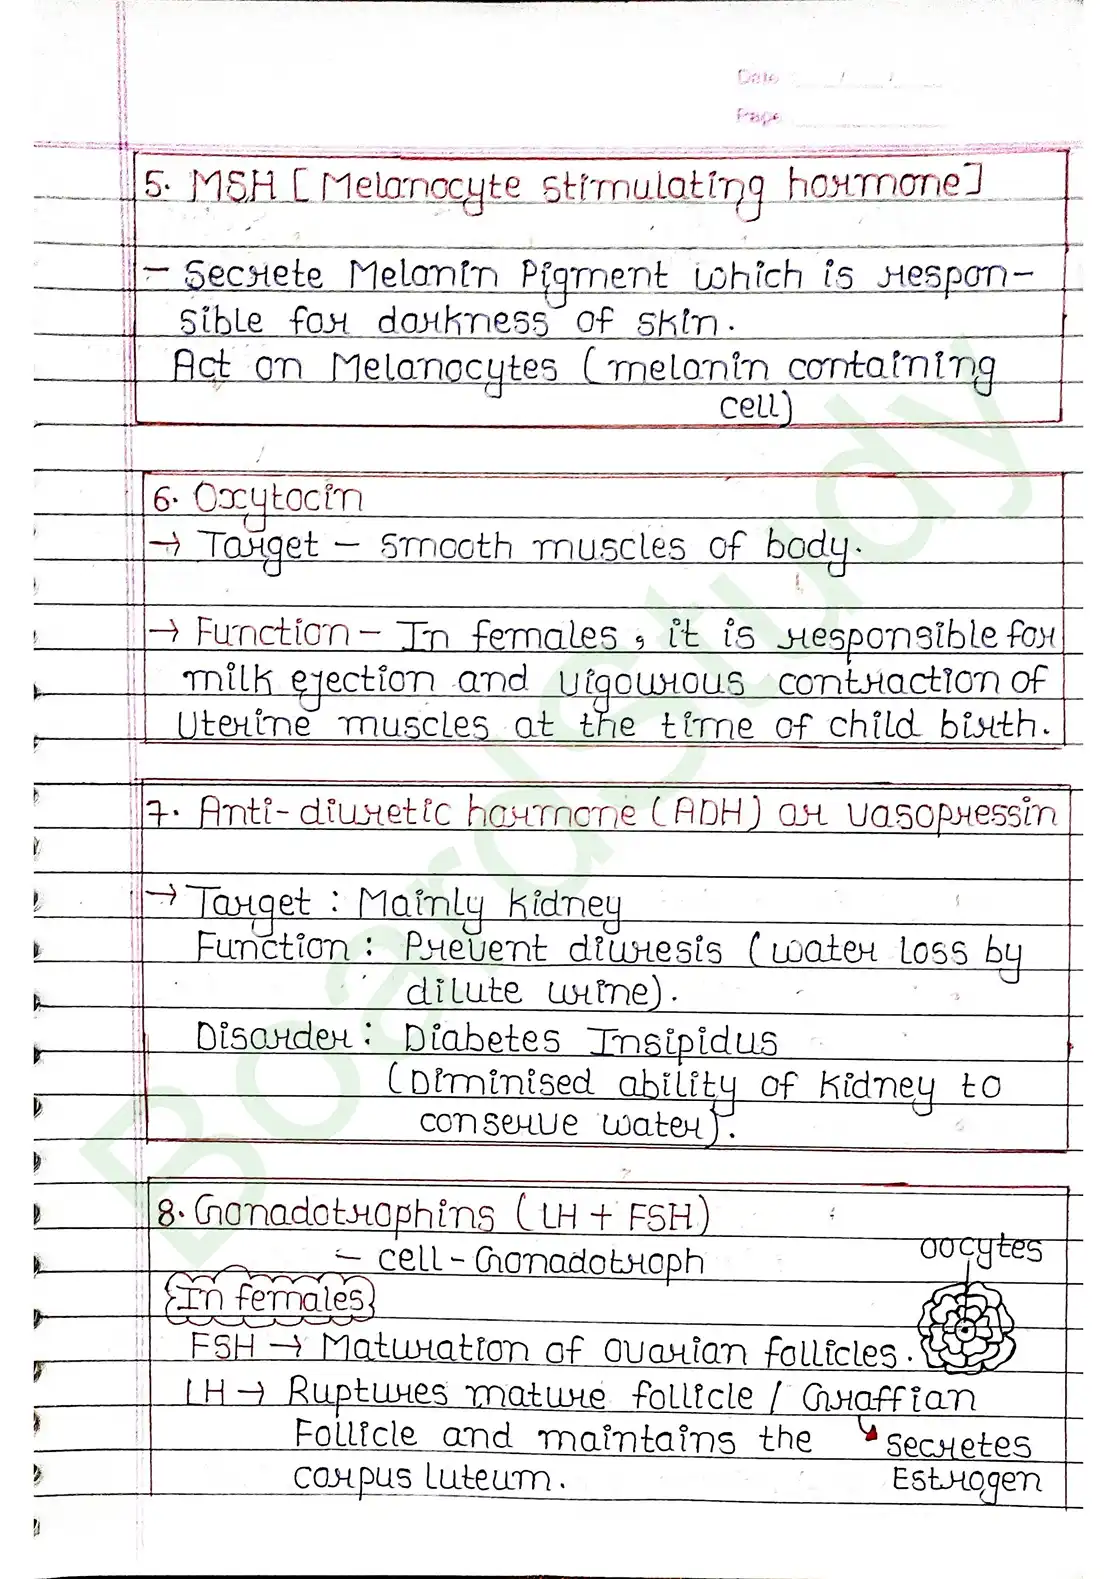 Date / /
Page
5. MSH [Melanocyte stimulating hormone]
- Secrete Melanin Pigment which is respon-
sible for darkness of skin.
Act on Melanocytes (melanin containing
cell)
6. Oxytocin
→ Target - smooth muscles of body.
→ Function - In females, it is responsible for
milk ejection and vigourous contraction of
Uterine muscles at the time of child birth.
7. Anti-diuretic hormone (ADH) or vasopressin
→ Target : Mainly kidney
Function : Prevent diuresis (water loss by
dilute urine).
Disorder : Diabetes Insipidus
(Diminised ability of kidney to
conserve water).
8. Gonadotrophins (LH + FSH)
- cell - Gonadotroph
oocytes
In females
FSH → Maturation of ovarian follicles.
LH → Ruptures mature follicle / Graffian
Follicle and maintains the
secretes
corpus luteum.
Estrogen
BoardStudy